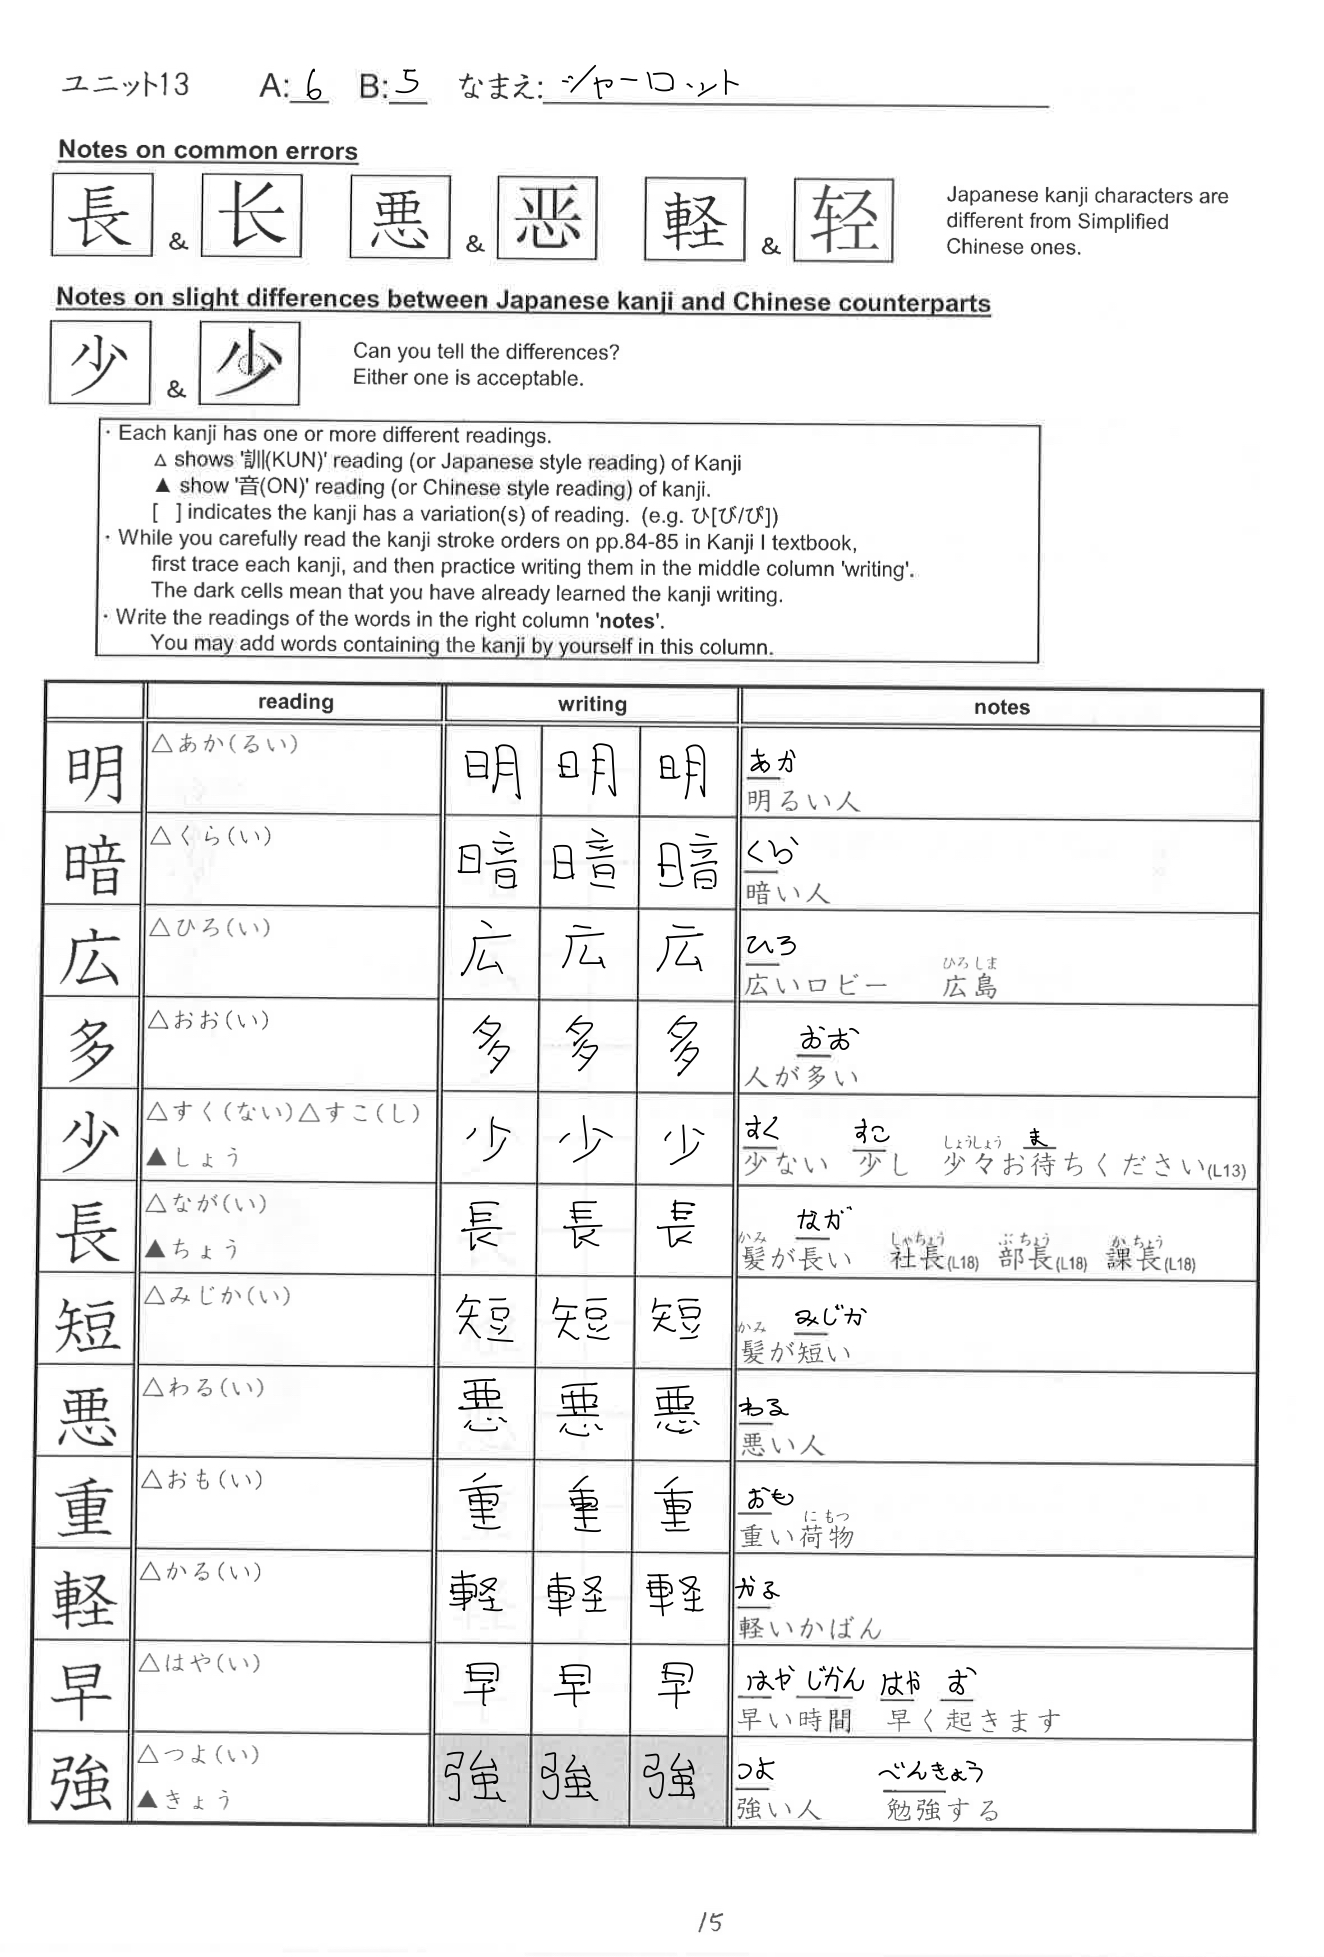 ユニット13 A: 6 B: 5 なまえ: シャーロット
Notes on common errors
長 & 长 悪 & 恶 軽 & 轻
Japanese kanji characters are
different from Simplified
Chinese ones.
Notes on slight differences between Japanese kanji and Chinese counterparts
少 & 少
Can you tell the differences?
Either one is acceptable.
・Each kanji has one or more different readings.
△ shows '訓(KUN)' reading (or Japanese style reading) of Kanji
▲ show '音(ON)' reading (or Chinese style reading) of kanji.
[ ] indicates the kanji has a variation(s) of reading. (e.g. ひ[び/ぴ])
・While you carefully read the kanji stroke orders on pp.84-85 in Kanji I textbook,
first trace each kanji, and then practice writing them in the middle column 'writing'.
The dark cells mean that you have already learned the kanji writing.
・Write the readings of the words in the right column 'notes'.
You may add words containing the kanji by yourself in this column.
reading writing notes
明 △あか(るい) 明 明 明 あか
明るい人
暗 △くら(い) 暗 暗 暗 くら
暗い人
広 △ひろ(い) 広 広 広 ひろ ひろしま
広いロビー 広島
多 △おお(い) 多 多 多 おお
人が多い
少 △すく(ない)△すこ(し) 少 少 少 すく すこ しょうしょう ま
▲しょう 少ない 少し 少々お待ちください(L13)
長 △なが(い) 長 長 長 かみ なが しゃちょう ぶちょう かちょう
▲ちょう 髪が長い 社長(L18) 部長(L18) 課長(L18)
短 △みじか(い) 短 短 短 かみ みじか
髪が短い
悪 △わる(い) 悪 悪 悪 わる
悪い人
重 △おも(い) 重 重 重 おも にもつ
重い荷物
軽 △かる(い) 軽 軽 軽 かる
軽いかばん
早 △はや(い) 早 早 早 はや じかん はや お
早い時間 早く起きます
強 △つよ(い) 強 強 強 つよ べんきょう
▲きょう 強い人 勉強する
15